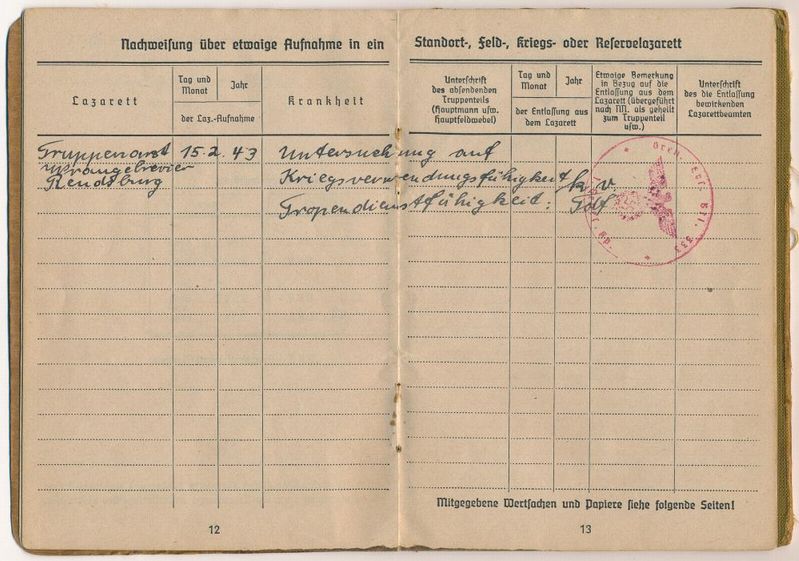 Nachweisung über etwaige Aufnahme in ein Standort-, Feld-, Kriegs- oder Reservelazarett
Lazarett
Tag und
Monat
Jahr
der Laz.-Aufnahme
Krankheit
Unterschrift
des absendenden
Truppenteils
(Hauptmann usw.
Hauptfeldwebel)
Tag und
Monat
Jahr
der Entlassung aus
dem Lazarett
Etwaige Bemerkung
in Bezug auf die
Entlassung aus dem
Lazarett (übergeführt
nach NN. als geheilt
zum Truppenteil
usw.)
Unterschrift
des die Entlassung
bewirkenden
Lazarettbeamten
Truppenarzt 15.2.43 Untersuchung auf
Rendsburg Kriegsverwendungsfähigkeit k.v.
Tropendienstfähigkeit:
Gren. 333
Mitgegebene Wertsachen und Papiere siehe folgende Seiten!
12
13